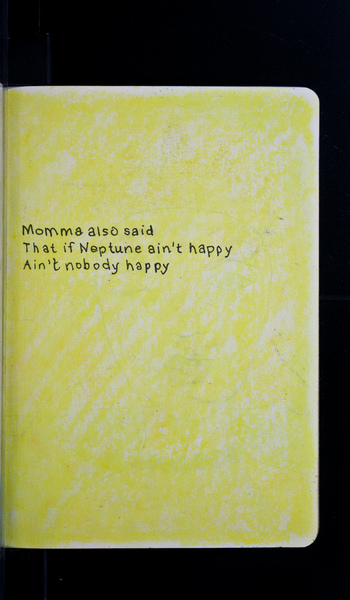 Momma also said
That if Neptune ain't happy
Ain't nobody happy